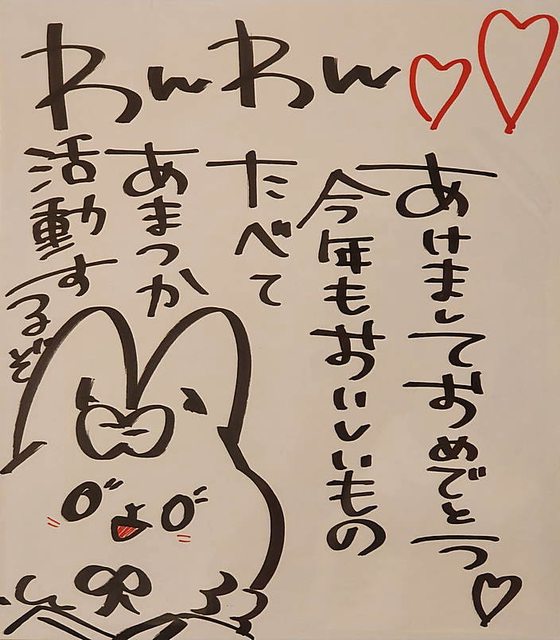 わんわん♡♡
あけましておめでとう♡
今年もおいしいもの
たべて
あまつか
活動するぞ